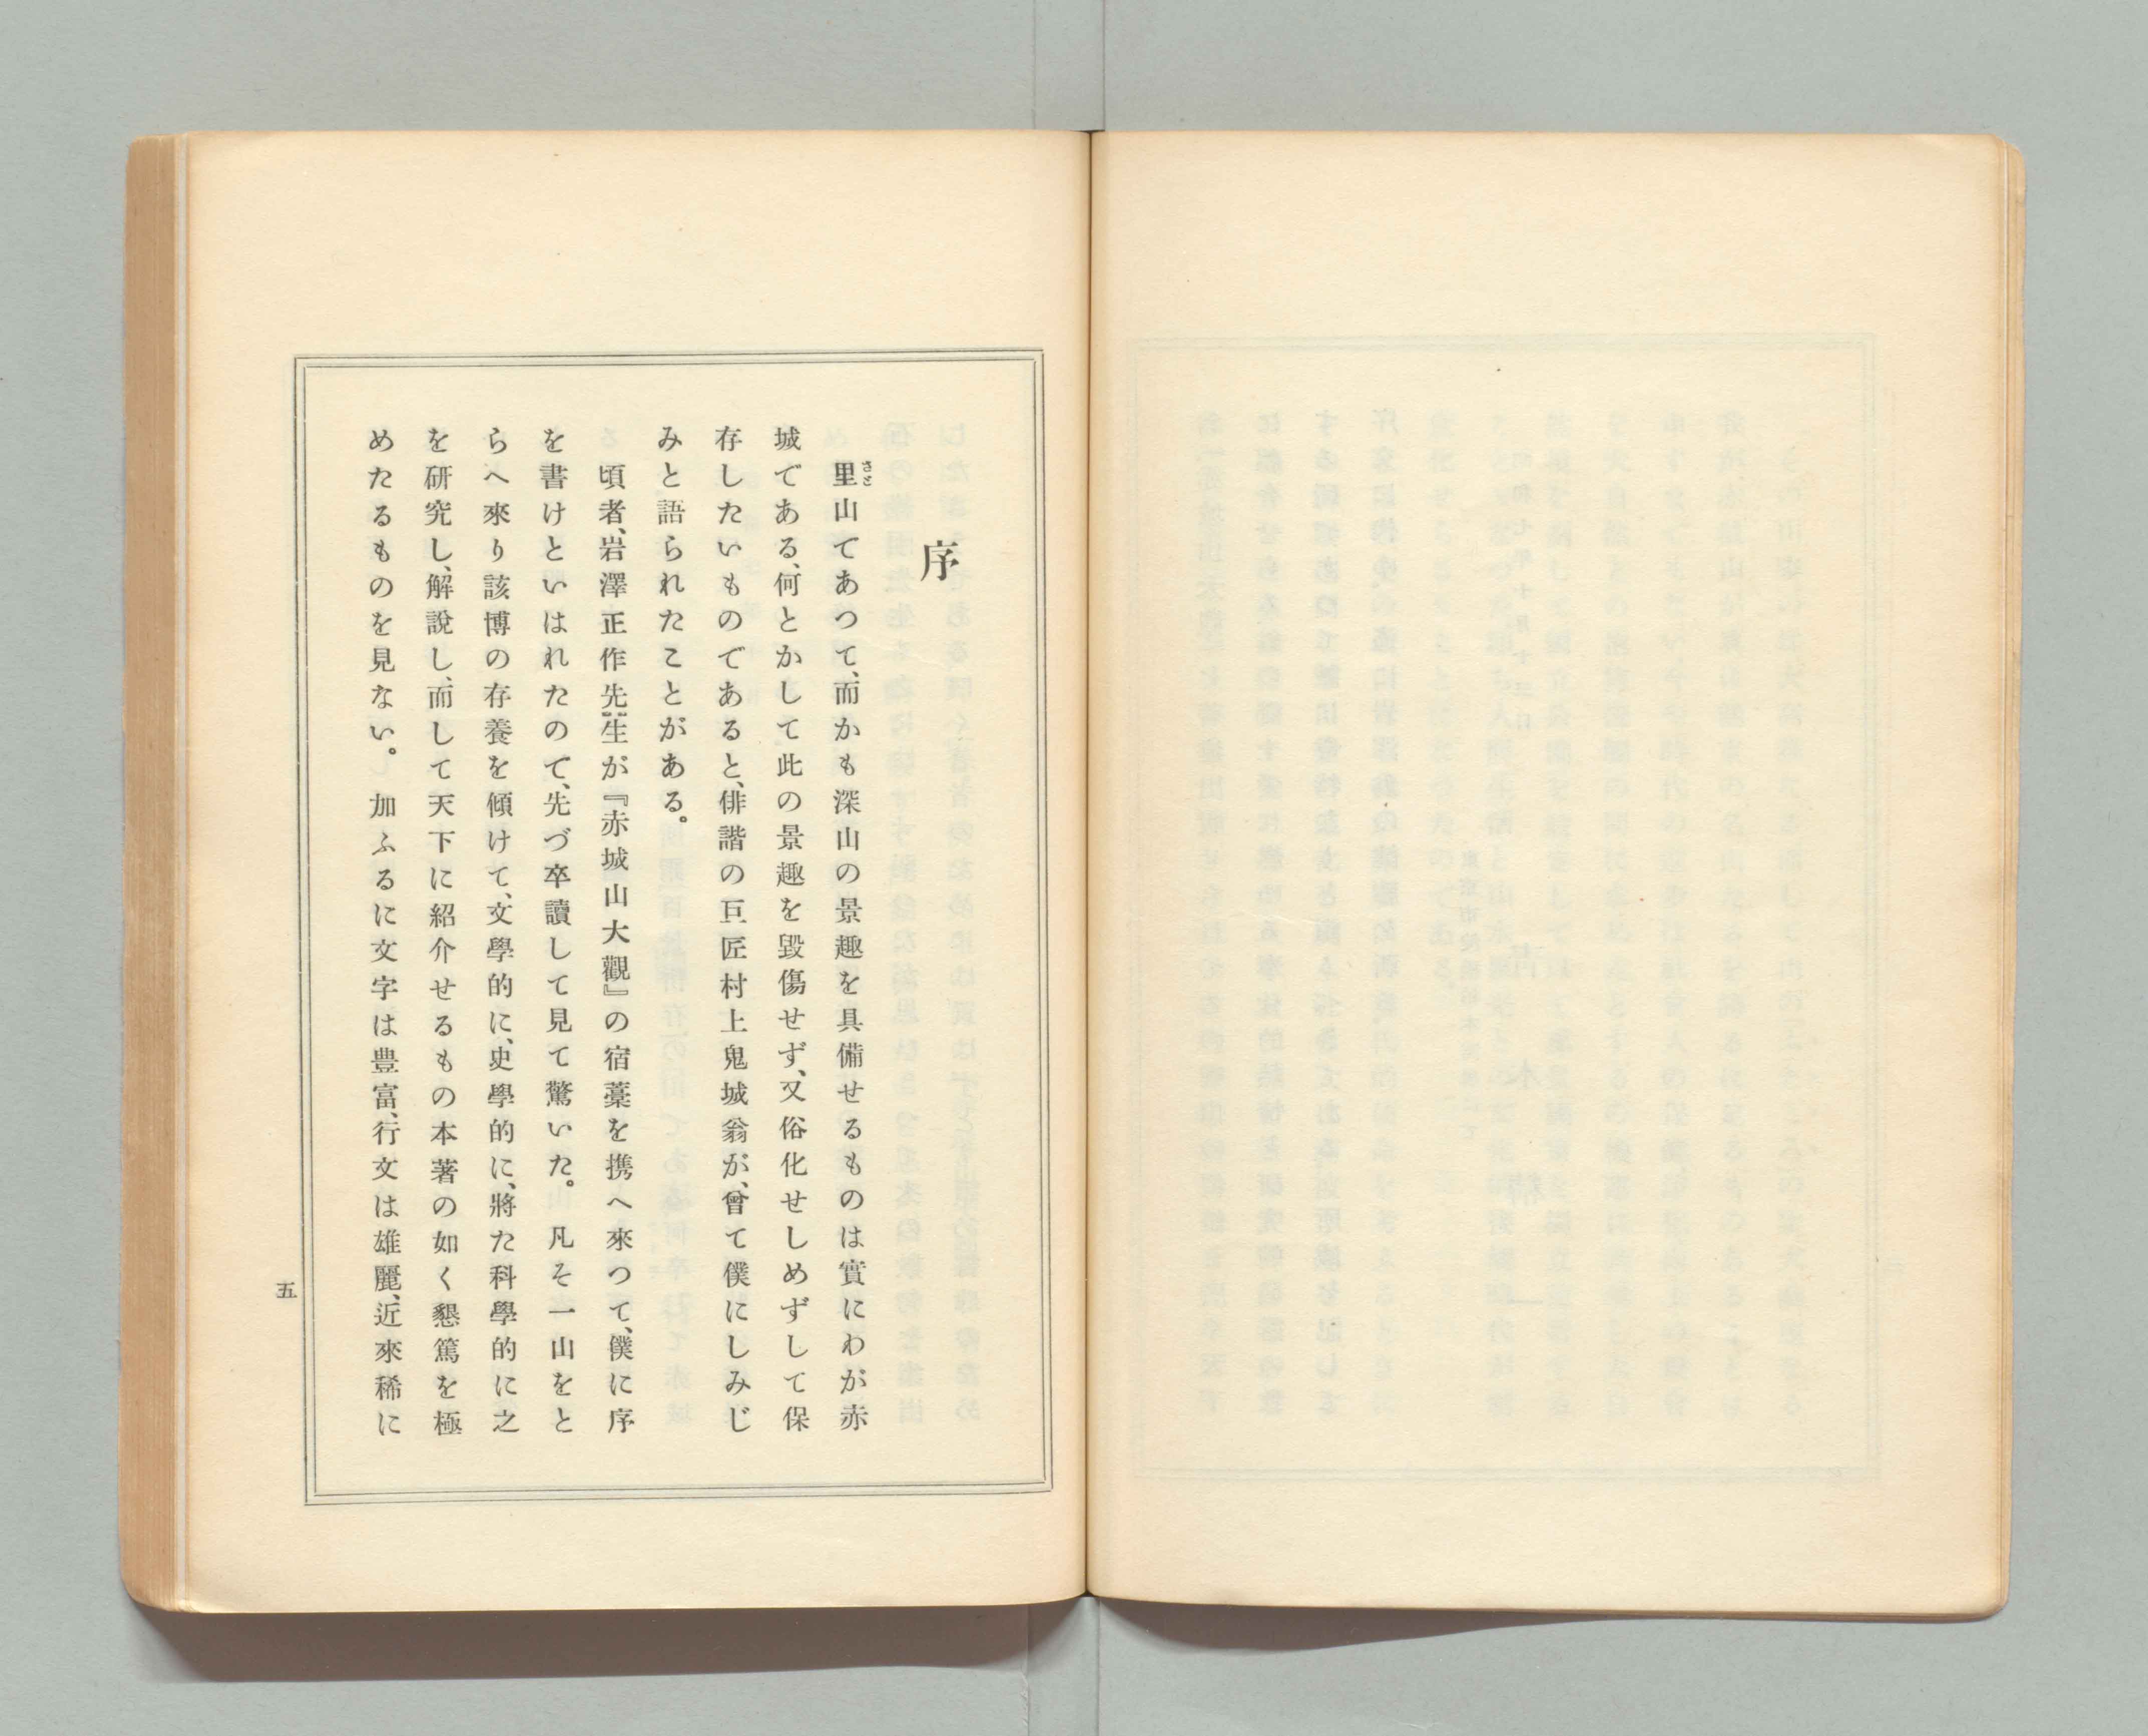 序
里山てあつて、而かも深山の景趣を具備せるものは實にわが赤
さと
城である、何とかして此の景趣を毀傷せず、又俗化せしめずして保
存したいものであると、俳諧の巨匠村上鬼城翁が、曾て僕にしみじ
みと語られたことがある。
頃者、岩澤正作先生が『赤城山大觀』の宿藁を携へ來つて、僕に序
を書けといはれたので、先づ卒讀して見て驚いた。凡そ一山をと
らへ來り該博の存養を傾けて、文學的に、史學的に、將た科學的に之
を研究し、解說し、而して天下に紹介せるもの本著の如く懇篤を極
めたるものを見ない。加ふるに文字は豊富、行文は雄麗、近來稀に
五